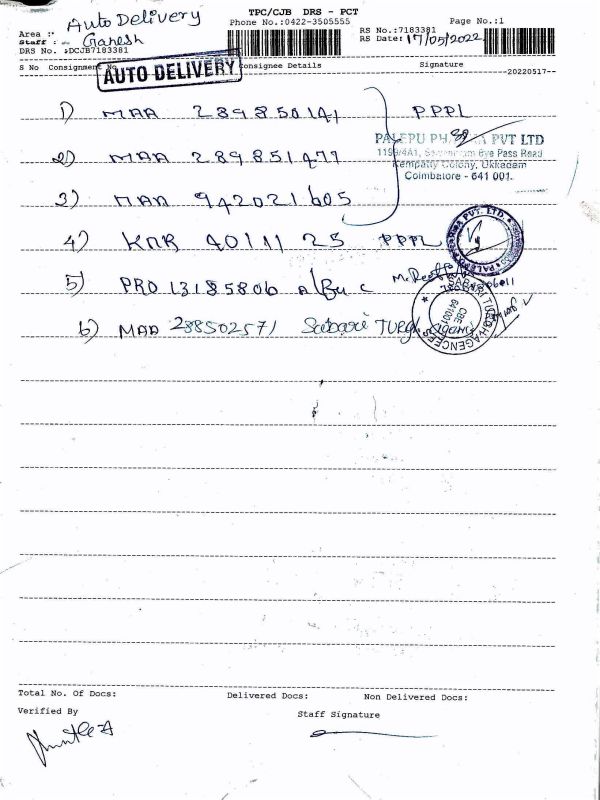 TPC/CJB DRS - PCT
Area : Auto Delivery
Phone No.:0422-3505555
Page No.:1
Staff : Ganesh
RS No.:7183381
DRS No. :DCJB7183381
RS Date: 17/05/2022
S No Consignment No
Consignee Details
Signature
AUTO DELIVERY
20220517
1) MAA 289850141 PPPL
PALEPU PHARMA PVT LTD
2) MAA 289851477
Bye Pass Road
Colony, Ukkadam
Coimbatore - 641 001.
3) MAA 942021605
4) KNR 401111 25 PPPL
PVT. LTD.
5) PRO 13185806
6) MAA 288502571 Sabari TURGH Agency
AGENCIES
CBE
641001
Total No. Of Docs:
Delivered Docs:
Non Delivered Docs:
Verified By
Staff Signature